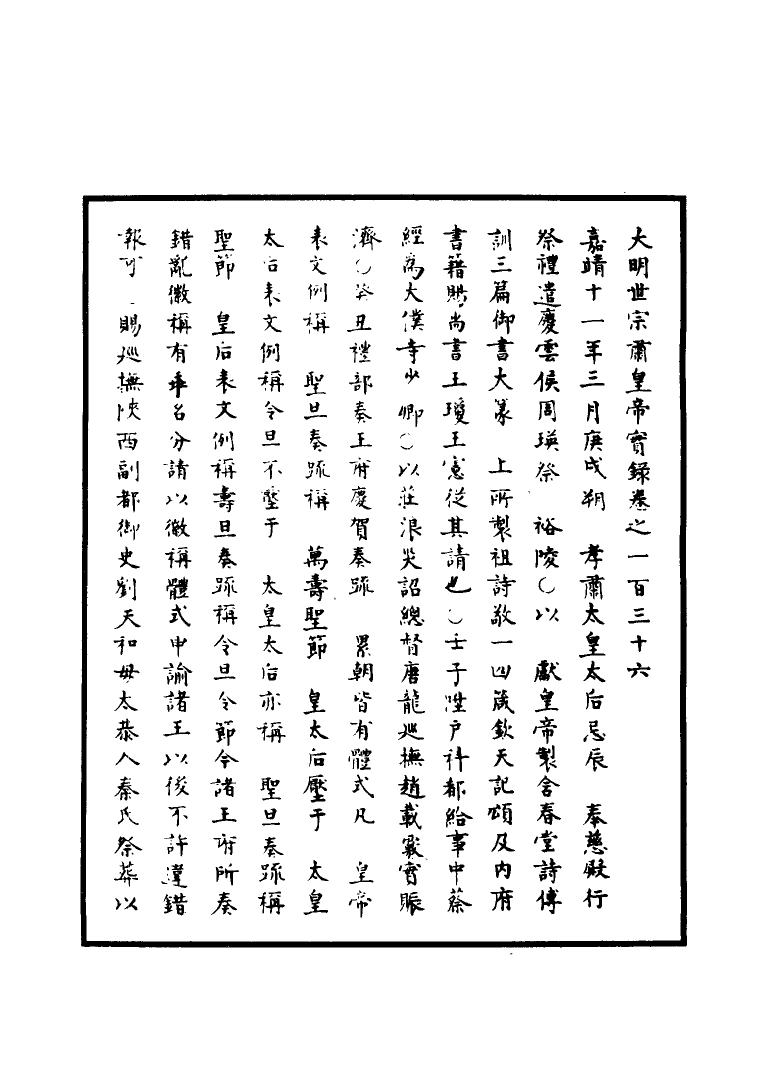 大明世宗肅皇帝實錄卷之一百三十六
嘉靖十一年三月庚戌朔　孝肅太皇太后忌辰　奉慈殿行
祭禮遣慶雲侯周瑛祭　裕陵○以　獻皇帝製含春堂詩傳
訓三篇御書大篆　上所製祖詩敬一四箴欽天記頌及內府
書籍賜尚書王瓊王憲從其請也○壬子陞戶科都給事中蔡
經為大僕寺少卿○以莊浪災詔總督唐龍巡撫趙載覈實賑
濟○癸丑禮部奏王府慶賀奏疏　累朝皆有體式凡　皇帝
表文例稱　聖旦奏疏稱　萬壽聖節　皇太后壓于　太皇
太后表文例稱令旦不壓于　太皇太后亦稱　聖旦奏疏稱
聖節　皇后表文例稱壽旦奏疏稱令旦令節今諸王府所奏
錯亂徽稱有乖名分請以徽稱體式申諭諸王以後不許違錯
報可　賜巡撫陝西副都御史劉天和母太恭人秦氏祭葬以